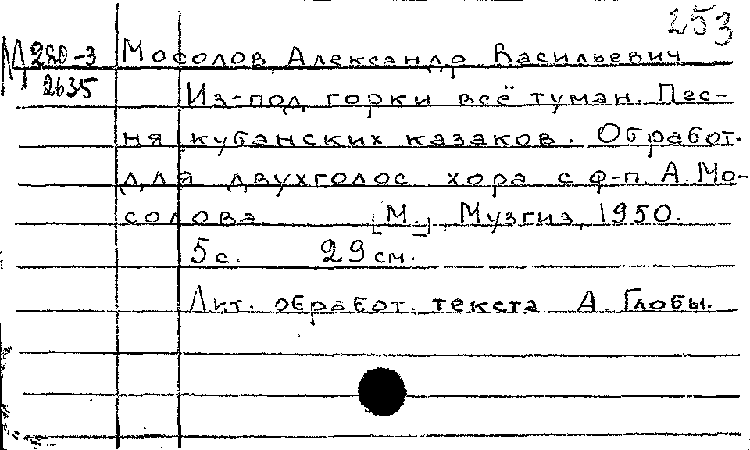 253
М 280-3 Мосолов Александр Васильевич
2635 Из-под горки всё туман. Пес-
ня кубанских казаков. Обработ.
для двухголос. хора с ф-п. А. Мо-
солова [М.] Музгиз, 1950.
5 с. 29 см.
Лит. обработ. текста А. Глобы.